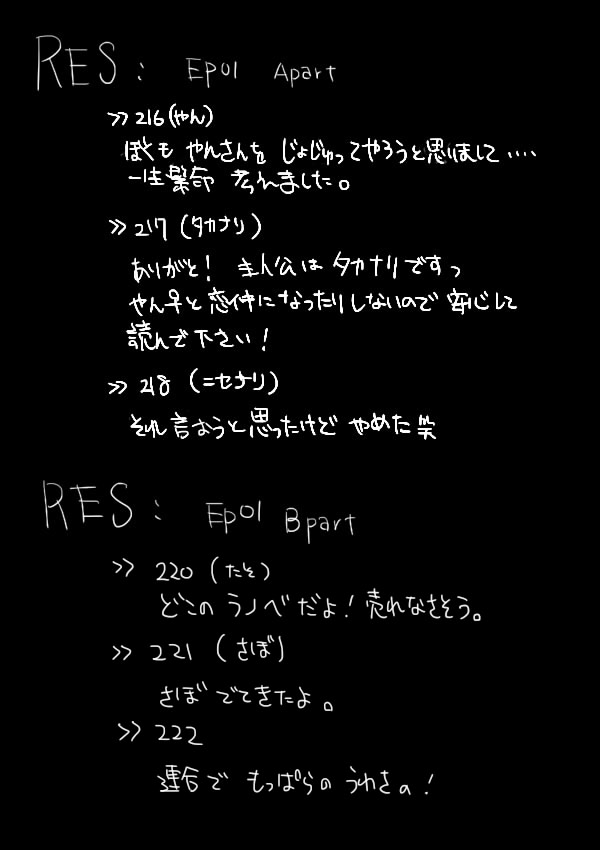 RES: EP01 Apart
>>216(やん)
ぼくも やんさんを じょじゅってやろうと思いまして‥‥
一生懸命 考えました。
>>217 (タカナリ)
ありがと! 主人公は タカナリですっ
やん早と 恋仲になったりしないので 安心して
読んで下さい!
>>218 (ニセナリ)
それ言おうと思ったけど やめた 笑
RES: EP01 Bpart
>>220 (たそ)
どこの ラノベだよ! 売れなさそう。
>>221 (さぼ)
さぼ でてきたよ。
>>222
連合で もっぱらの うわさの!